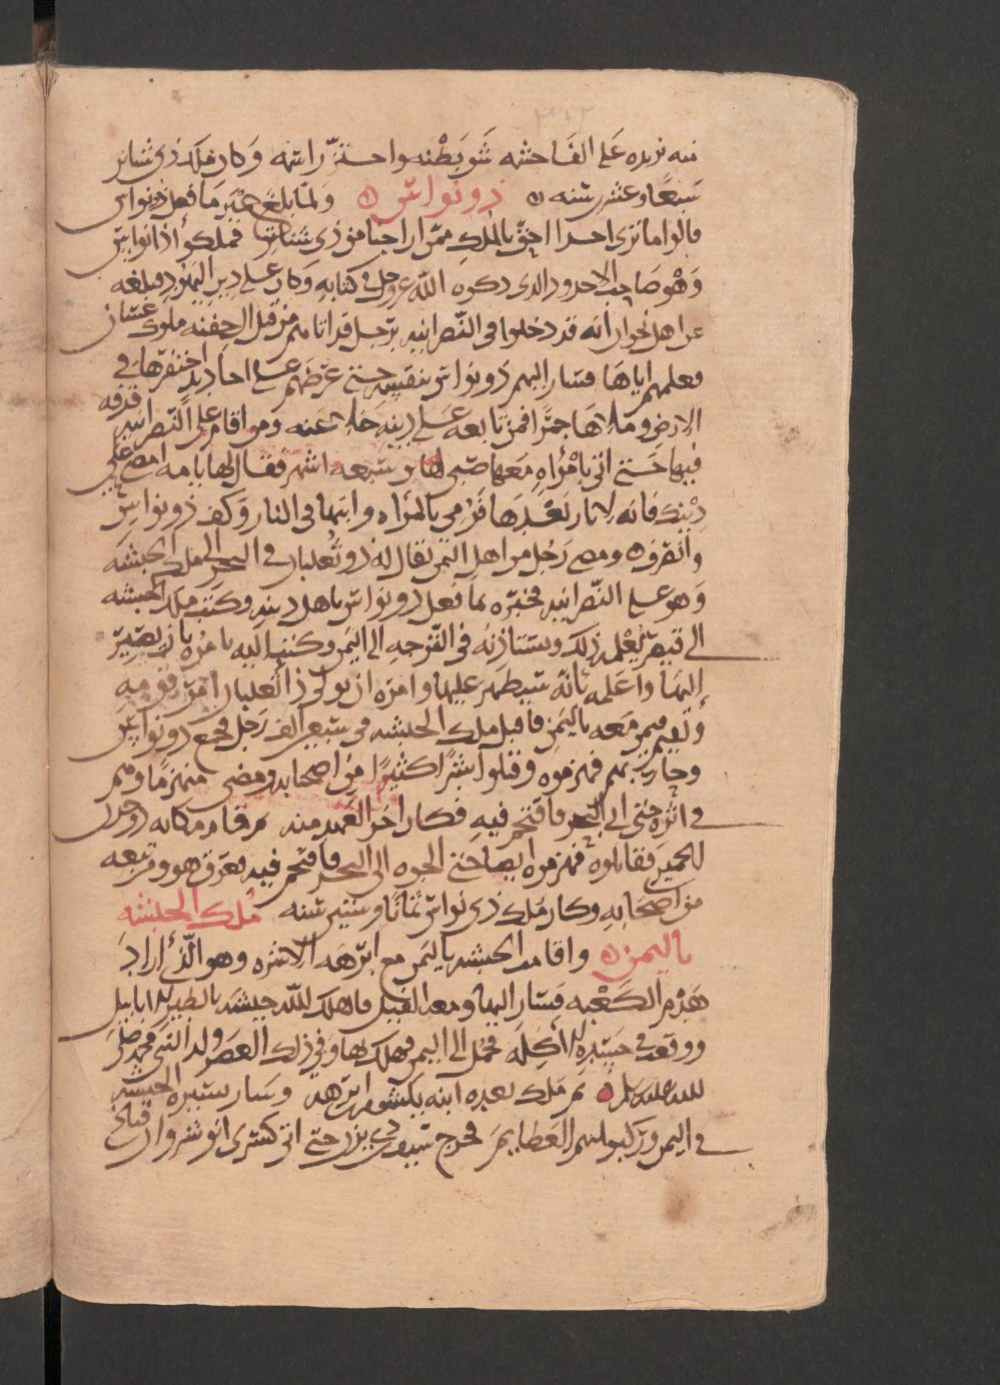 منه يريده على الفاحشه شق بطنه واحتز راسه وكان ملك ذي شناتر
سبعا وعشرين سنه ذو نواس ولما بلغ حمير ما فعل ذو نواس
قالوا ما نرى احدا احق بالملك ممن اراحنا من ذي شناتر فملكوا ذا نواس
وهو صاحب الاخدود الذي ذكره الله عز وجل في كتابه وكان على دين اليهود فبلغه
عن اهل نجران انه قد دخلوا في النصرانيه برجل قد اتاهم من قبل ال جفنه ملوك غسان
فعلمهم اياها فسار اليهم ذو نواس بنفسه حتى عرضهم على اخاديد احتفرها في
الارض وملاها جمرا فمن تابعه على دينه خلا عنه ومن اقام على النصرانيه قذفه
فيها حتى اتى بامراه معها صبي لها من سبعه اشهر فقال لها يا مه امضي على
دينك فانه لا نار بعدها فرمي بالمراه وابنها في النار وكف ذو نواس
وانصرف ومضى رجل من اهل اليمن يقال له ذو ثعلبان في البحر الى ملك الحبشه
وهو على النصرانيه فخبره بما فعل ذو نواس باهل دينه وكتب ملك الحبشه
الى قيصر يعلمه ذلك ويستاذنه في التوجه الى اليمن وكتب اليه يامره بان يصير
اليها واعلمه بانه سيظهر عليها وامره ان يولي ذا ثعلبان امر قومه
ويقيم فيمن معه باليمن فاقبل ملك الحبشه في سبعين الف رجل فجمع ذو نواس
وحاربهم فهزموه وقتلوا بشرا كثيرا من اصحابه ومضى منهزما وهم
في اثره حتى اتى البحر فاقتحم فيه فكان اخر العهد منه ثم قام مكانه ذو جدن
الحميري فقاتلوه فهزموه ايضا حتى الجوه الى البحر فاقتحم فيه فغرق هو ومن تبعه
من اصحابه وكان ملك ذي نواس ثمانا وستين سنه ملك الحبشه
باليمن واقامت الحبشه باليمن مع ابرهه الاشرم وهو الذي اراد
هدم الكعبه فسار اليها ومعه الفيل فاهلك الله جيشه بالطير الابابيل
ووقعت في جسده الاكله فحمل الى اليمن فهلك بها وفي ذلك العصر ولد النبي محمد صلى
الله عليه وسلم ثم ملك بعده ابنه يكسوم بن ابرهه وسار سيره الحبشه
في اليمن وركبوا منهم العظايم فخرج سيف بن ذي يزن حتى اتى كسرى انوشروان قباذ